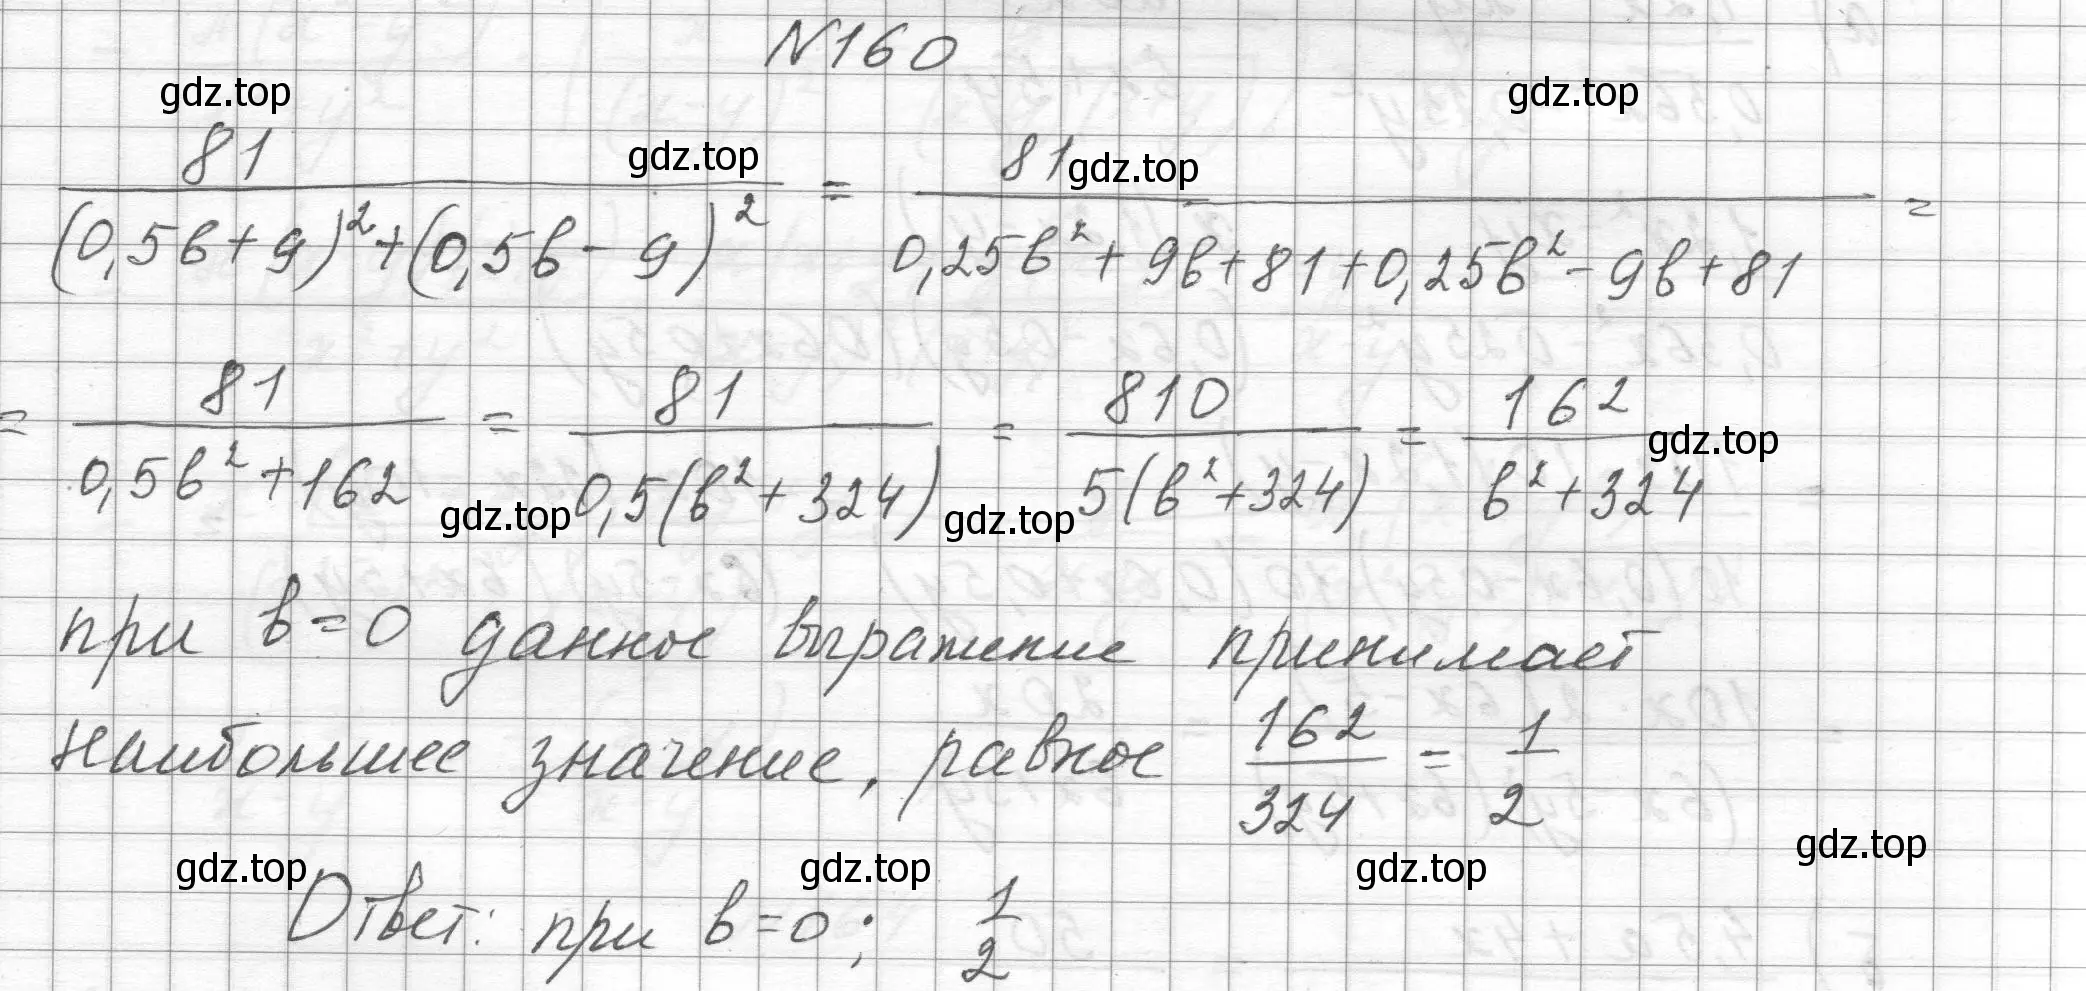 N160
gdz.top
gdz.top
81/((0,5b+9)²+(0,5b-9)²) = 81/(0,25b²+9b+81+0,25b²-9b+81) =
gdz.top
gdz.top
= 81/(0,5b²+162) = 81/(0,5(b²+324)) = 810/(5(b²+324)) = 162/(b²+324)
gdz.top
gdz.top
gdz.top
при b=0 данное выражение принимает
наибольшее значение, равное 162/324 = 1/2
gdz.top
gdz.top
gdz.top
gdz.top
Ответ: при b=0; 1/2